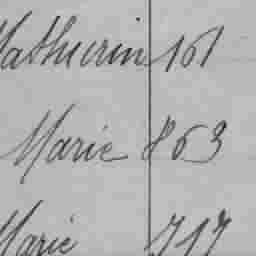 Mathurin 161
Marie 863
Marie 717